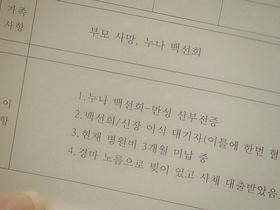 가족
사항
부모 사망, 누나 백선희
이
항
1.누나 백선희-만성 신부전증
2.백선희/신장 이식 대기자(이틀에 한번 혈
3.현재 병원비 3개월 미납 중
4.경마 노름으로 빚이 있고 사채 대출받았음.